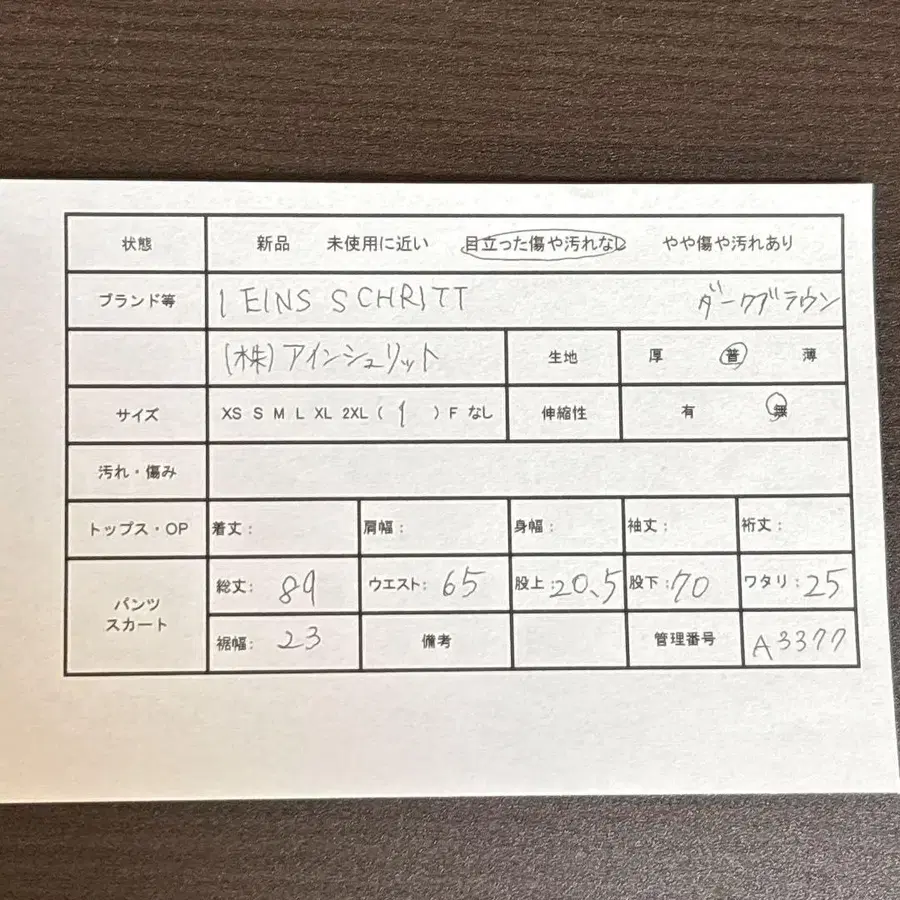 状態 新品 未使用に近い 目立った傷や汚れなし やや傷や汚れあり
ブランド等 1 EINS SCHRITT ダークブラウン
(株)アインシュリット 生地 厚 普 薄
サイズ XS S M L XL 2XL ( 1 ) F なし 伸縮性 有 無
汚れ・傷み
トップス・OP 着丈: 肩幅: 身幅: 袖丈: 裄丈:
パンツ スカート 総丈: 89 ウエスト: 65 股上: 20.5 股下: 70 ワタリ: 25
裾幅: 23 備考 管理番号 A3377